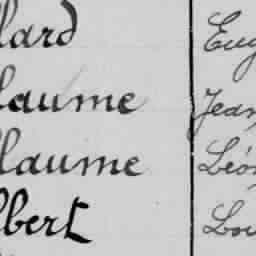 llard Eug
llaume Jean
llaume Léon
lbert Lou